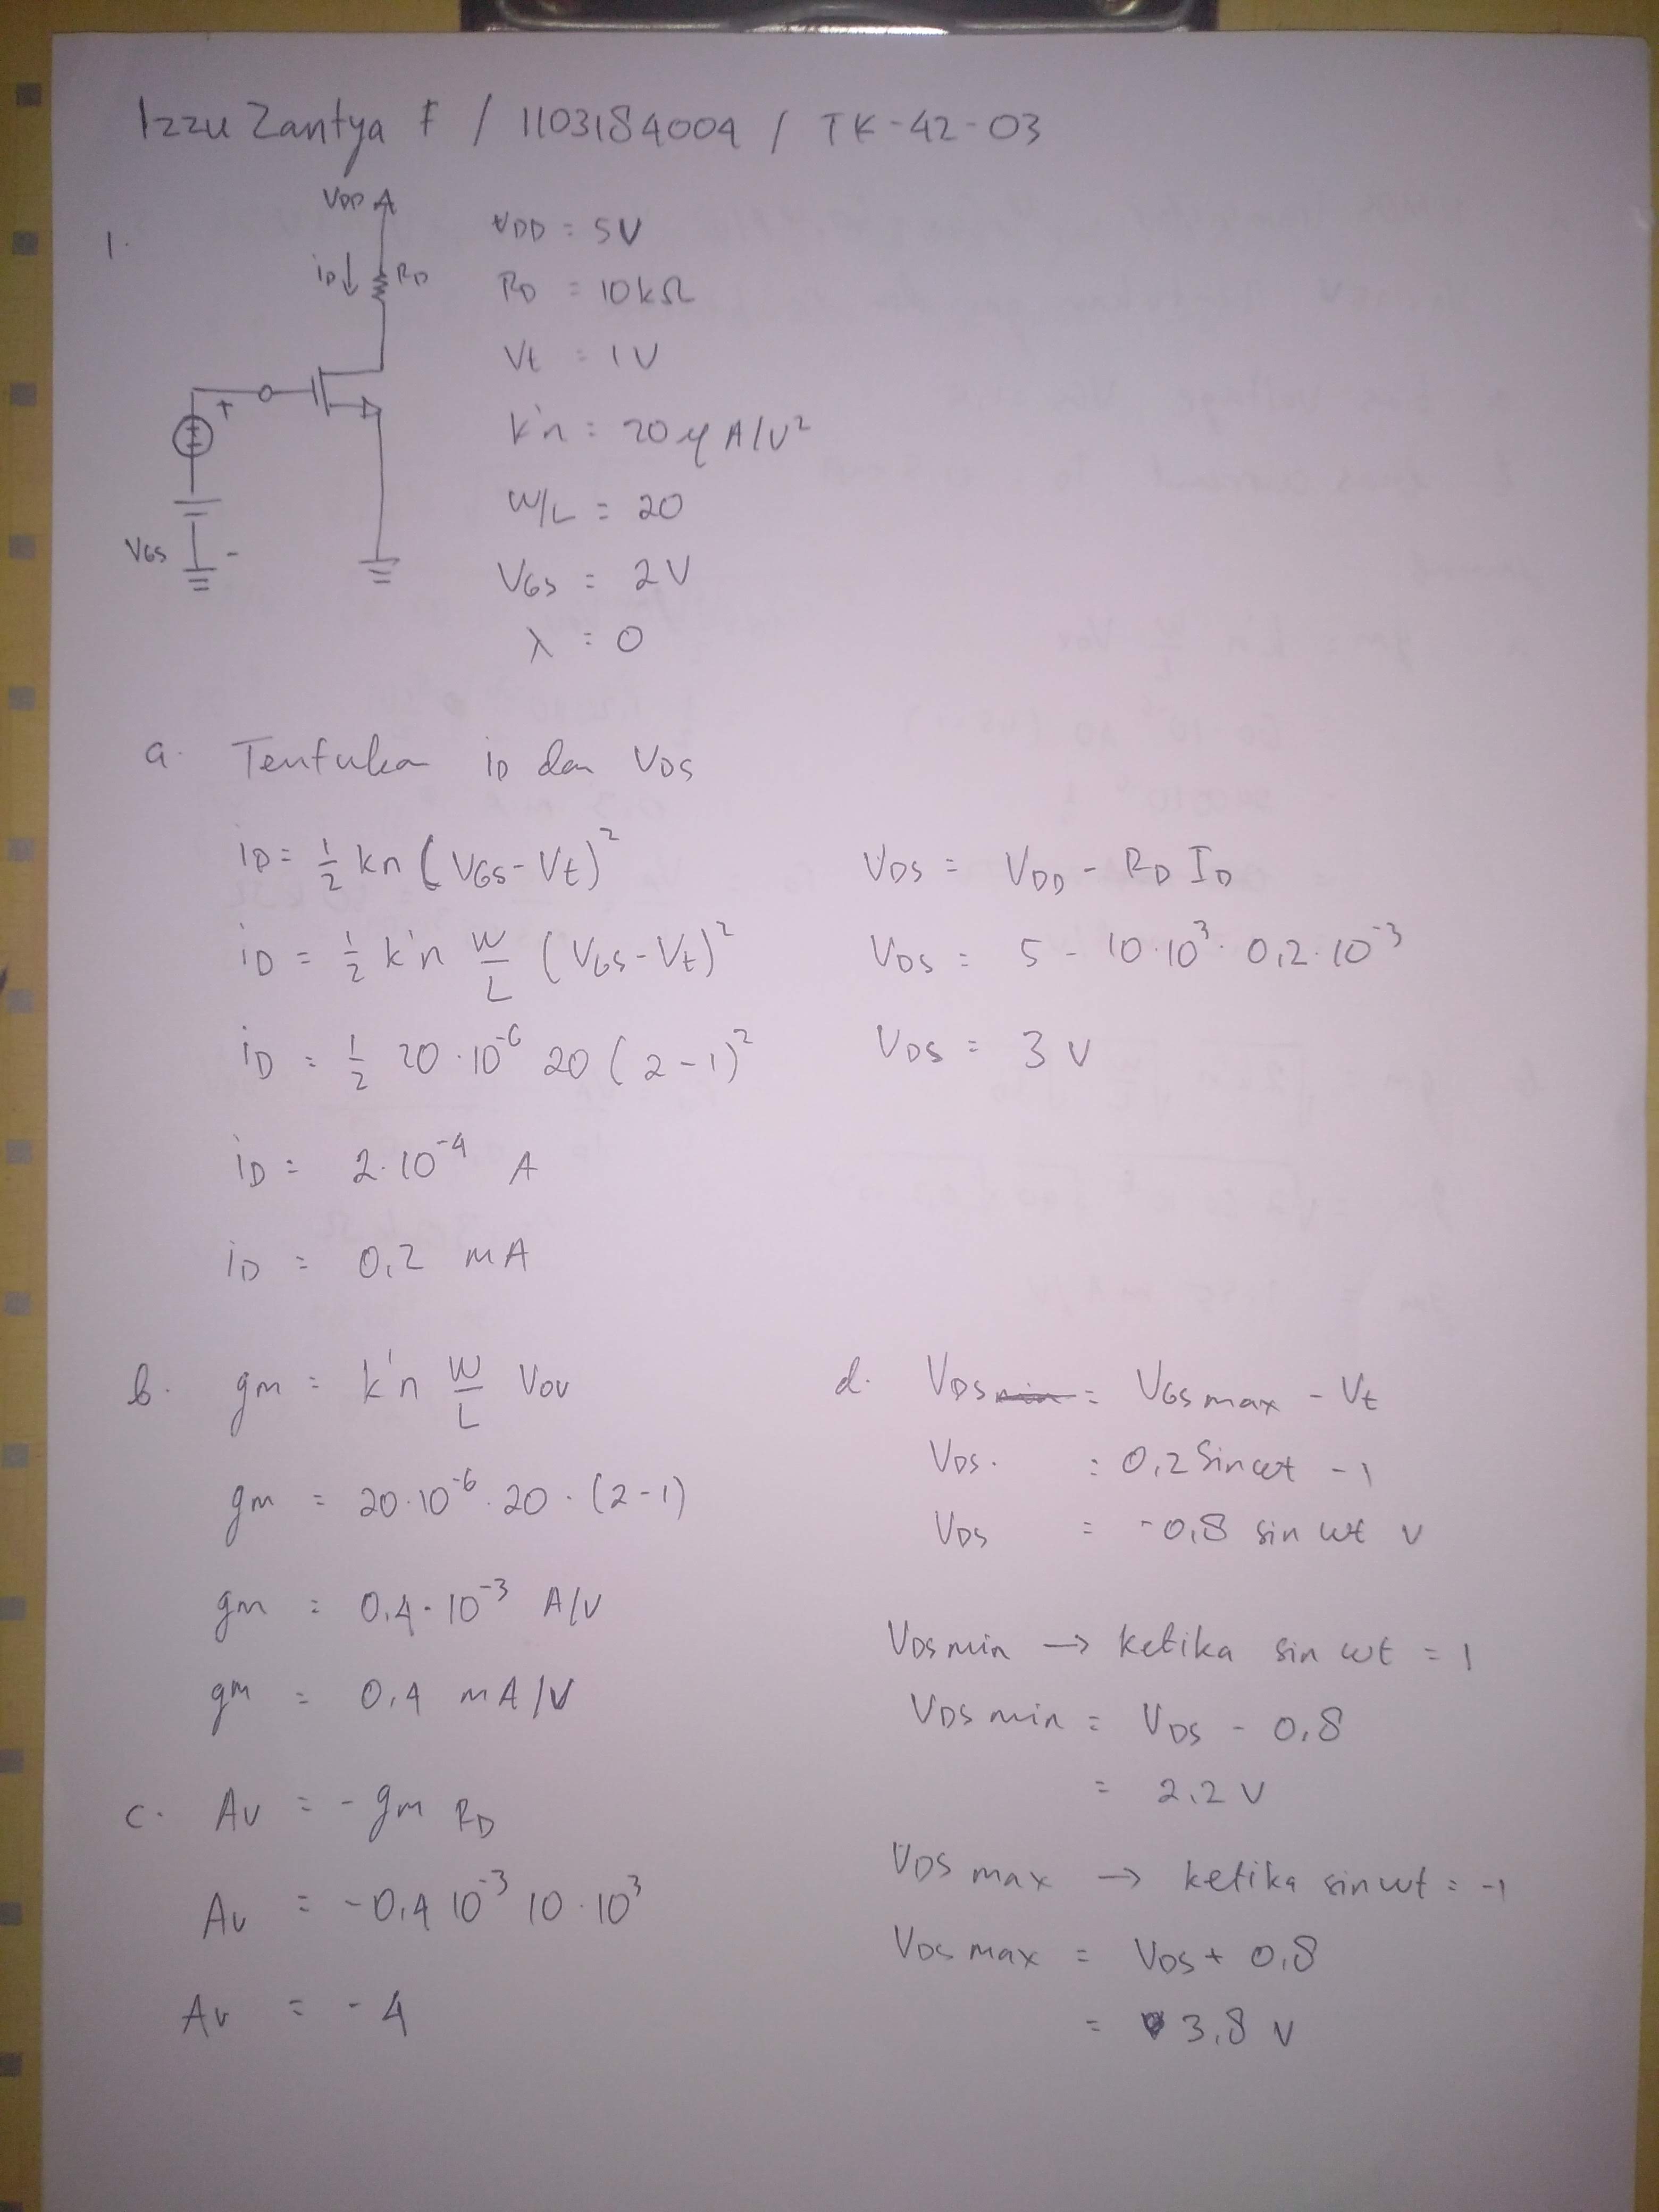 Izzu Zantya F / 1103184009 / TK-42-03
1.
VDD
iD↓ RD
+
VGS -
VDD = 5V
RD = 10kΩ
Vt = 1V
k'n = 20 μA/V²
W/L = 20
VGS = 2V
λ = 0
a. Tentukan iD dan VDS
iD = 1/2 kn (VGS - Vt)²
iD = 1/2 k'n W/L (VGS - Vt)²
iD = 1/2 20·10⁻⁶ 20 (2-1)²
iD = 2·10⁻⁴ A
iD = 0,2 mA
VDS = VDD - RD ID
VDS = 5 - 10·10³·0,2·10⁻³
VDS = 3 V
b. gm = k'n W/L Vov
gm = 20·10⁻⁶·20·(2-1)
gm = 0,4·10⁻³ A/V
gm = 0,4 mA/V
c. Av = -gm RD
Av = -0,4 10⁻³ 10·10³
Av = -4
d. VDS min = VGS max - Vt
VDS. = 0,2 Sin ωt - 1
VDS = -0,8 sin ωt V
VDS min → ketika sin ωt = 1
VDS min = VDS - 0,8
= 2,2 V
VDS max → ketika sin ωt = -1
VDS max = VDS + 0,8
= 3,8 V